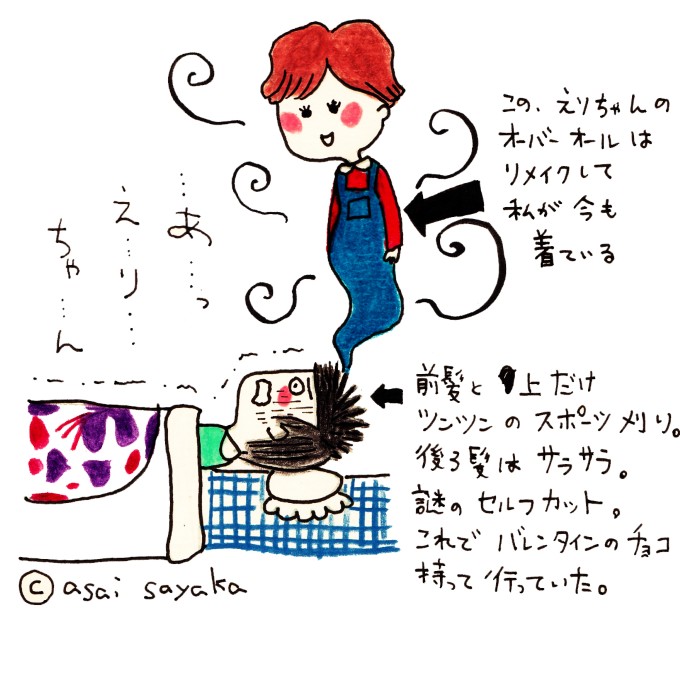 この、えりちゃんの
オーバーオールは
リメイクして
私が今も
着ている
…あ…っ
え…り…
ちゃ…ん
前髪と上だけ
ツンツンのスポーツ刈り。
後ろ髪はサラサラ。
謎のセルフカット。
これでバレンタインのチョコ
持って行っていた。
©asai sayaka